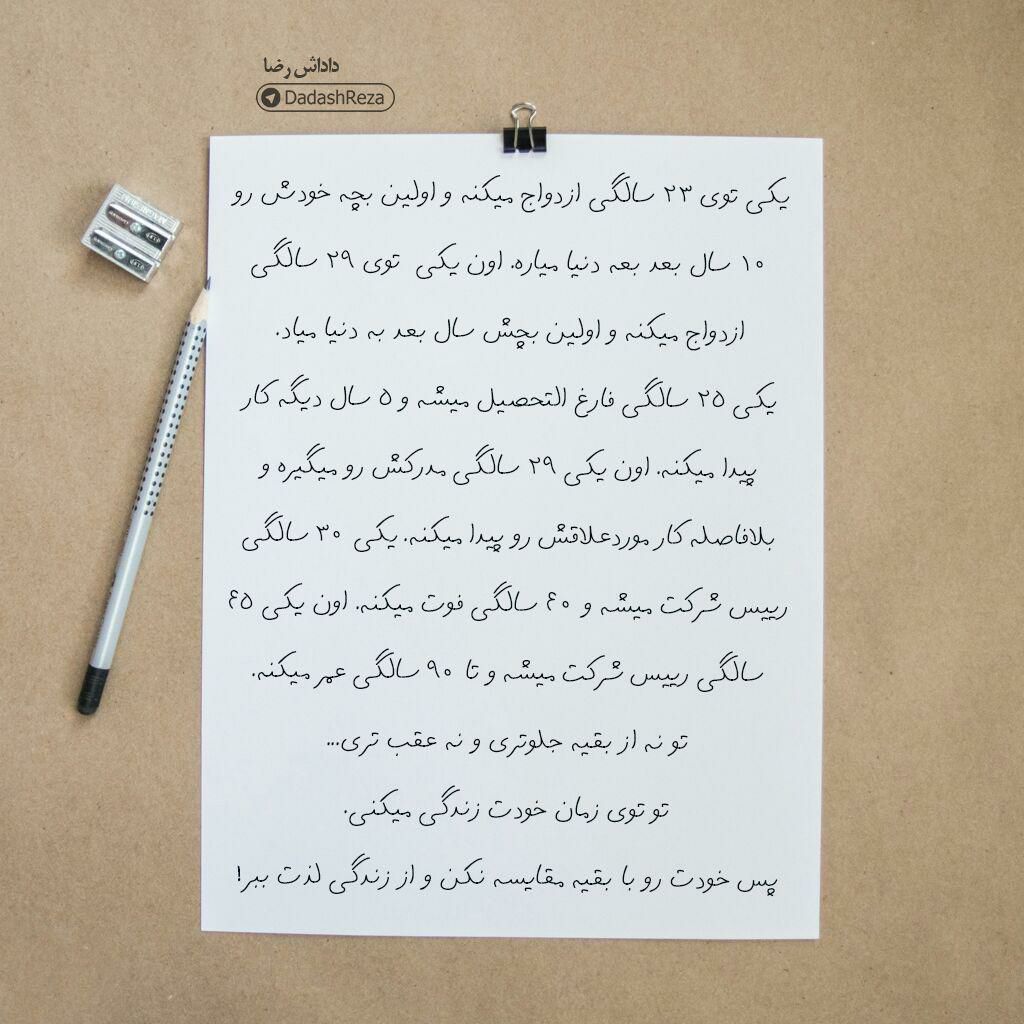 داداش رضا
DadashReza
یکی توی ۲۳ سالگی ازدواج میکنه و اولین بچه خودش رو
۱۰ سال بعد بعه دنیا میاره. اون یکی توی ۲۹ سالگی
ازدواج میکنه و اولین بچش سال بعد به دنیا میاد.
یکی ۲۵ سالگی فارغ التحصیل میشه و ۵ سال دیگه کار
پیدا میکنه. اون یکی ۲۹ سالگی مدرکش رو میگیره و
بلافاصله کار موردعلاقش رو پیدا میکنه. یکی ۳۰ سالگی
رییس شرکت میشه و ۶۰ سالگی فوت میکنه. اون یکی ۶۵
سالگی رییس شرکت میشه و تا ۹۰ سالگی عمر میکنه.
تو نه از بقیه جلوتری و نه عقب تری...
تو توی زمان خودت زندگی میکنی.
پس خودت رو با بقیه مقایسه نکن و از زندگی لذت ببر!